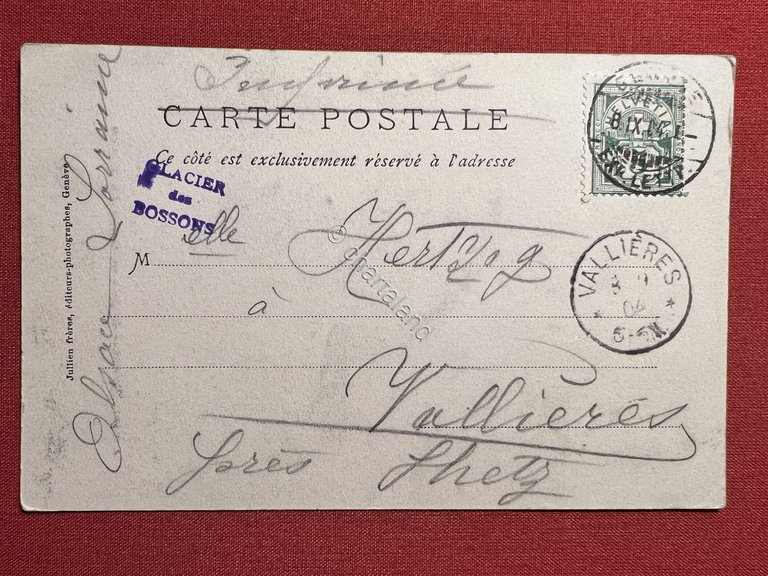 Imprimé
CARTE POSTALE
Ce côté est exclusivement réservé à l'adresse
GLACIER
des
BOSSONS
Melle Hertzog
à
Vallières
près Metz
Alsace Lorraine
Jullien frères, éditeurs-photographes, Genève
HELVETIA
VALLIÈRES
9
04
5-6N
© chartaland